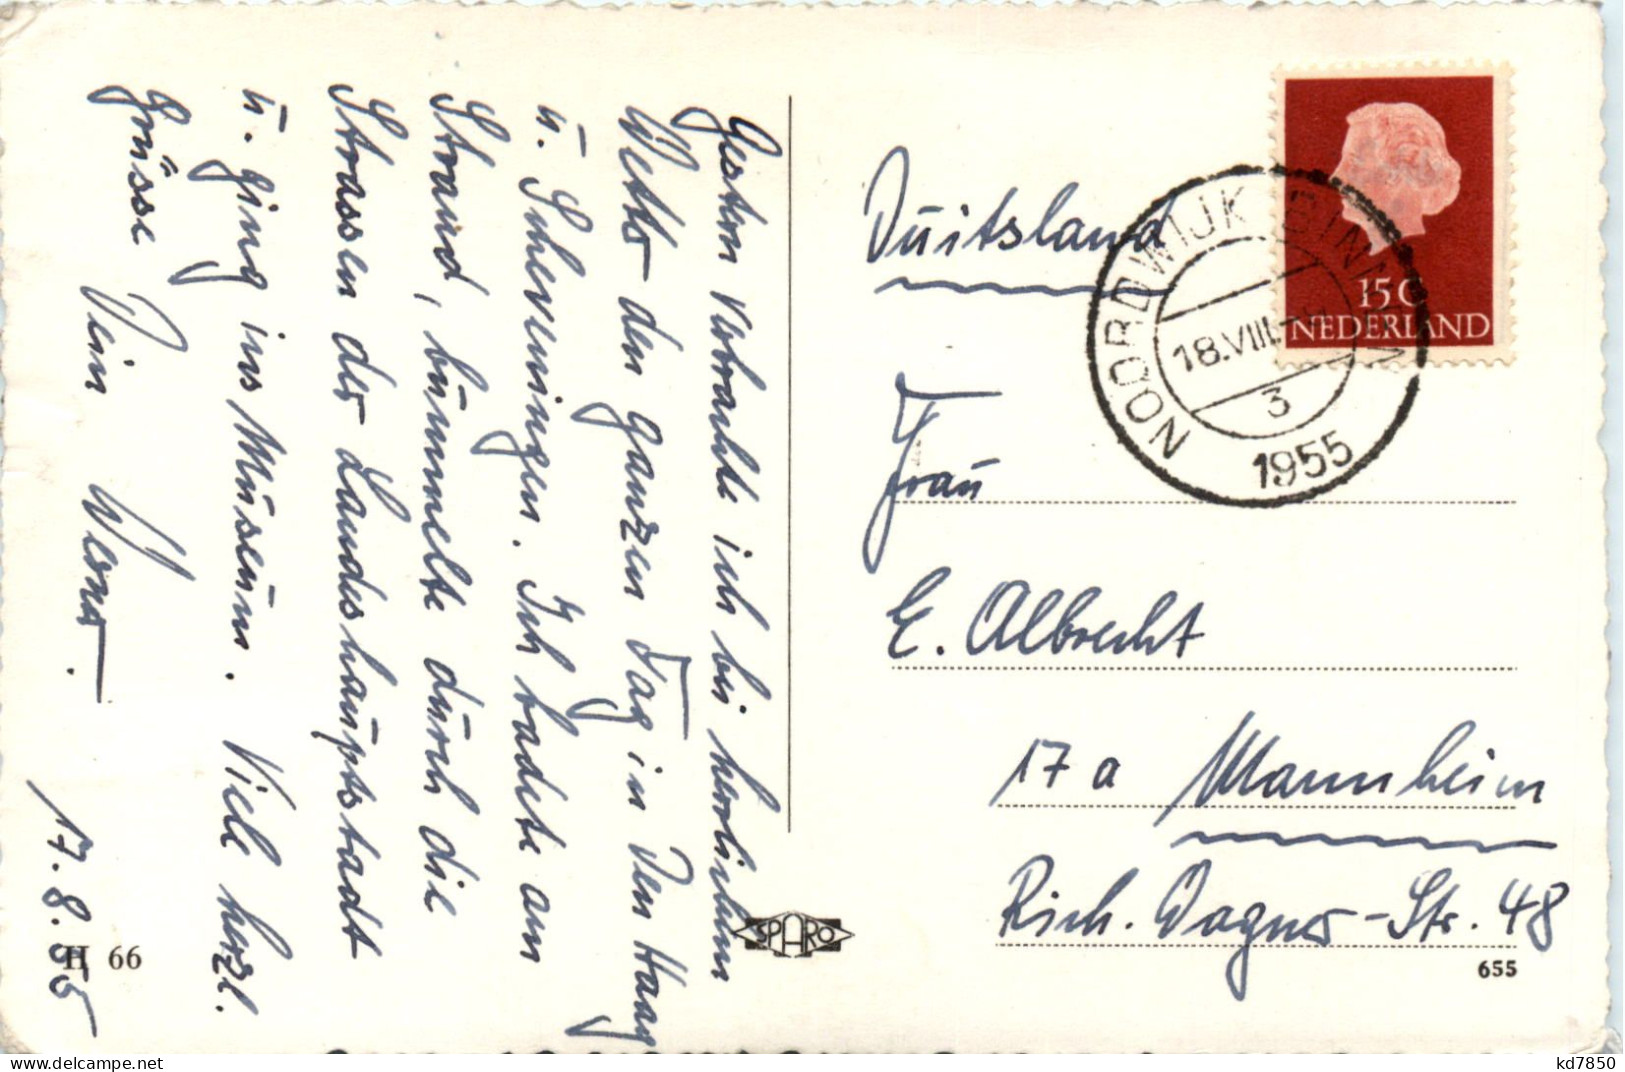 Gestern verbrachte ich bei herrlichem
Wetter den ganzen Tag in Den Haag
u. Scheveningen. Ich badete am
Strand, bummelte durch die
Strassen der Landeshauptstadt
u. ging ins Museum. Viele herzl.
Grüsse Dein Werner.
17.8.55
H 66
SPARO
Duitsland
Frau
E. Albrecht
17a Mannheim
Rich. Wagner-Str. 48
655
15 C
NEDERLAND
NOORDWIJK BINNEN
18.VIII
3
1955
delcampe.net
kd7850